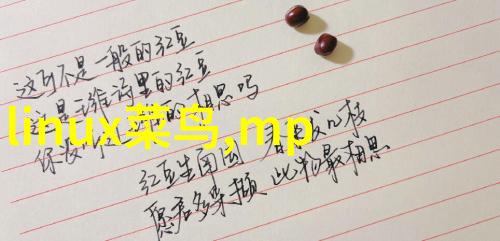 这可不是一般的红豆
这是王维诗里的红豆
你 的相思吗
linux菜鸟,mp
红豆生南国 春来发几枝
愿君多采撷 此物最相思